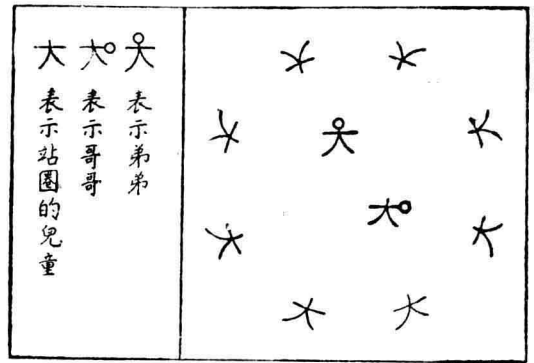 表示弟弟
表示哥哥
表示站圈的兒童